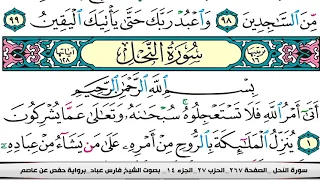 مِّنَ ٱلسَّٰجِدِينَ ٩٨ وَٱعْبُدْ رَبَّكَ حَتَّىٰ يَأْتِيَكَ ٱلْيَقِينُ ٩٩
سُورَةُ النَّحْلِ
بِسْمِ ٱللَّهِ ٱلرَّحْمَٰنِ ٱلرَّحِيمِ
أَتَىٰٓ أَمْرُ ٱللَّهِ فَلَا تَسْتَعْجِلُوهُ سُبْحَٰنَهُۥ وَتَعَٰلَىٰ عَمَّا يُشْرِكُونَ
١ يُنَزِّلُ ٱلْمَلَٰٓئِكَةَ بِٱلرُّوحِ مِنْ أَمْرِهِۦ عَلَىٰ مَن يَشَآءُ مِنْ عِبَادِهِۦٓ
سورة النحل _ الصفحة ٢٦٧ _ الحزب ٢٧ _ الجزء ١٤ _ بصوت الشيخ فارس عباد _ برواية حفص عن عاصم